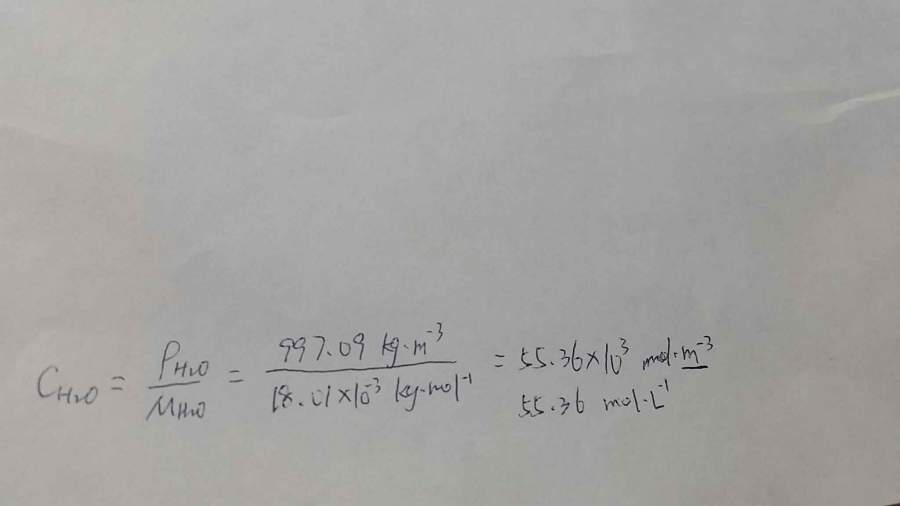 C_{H₂O} = ρ_{H₂O} / M_{H₂O} = 997.09 kg·m⁻³ / 18.01×10⁻³ kg·mol⁻¹ = 55.36×10³ mol·m⁻³
55.36 mol·L⁻¹